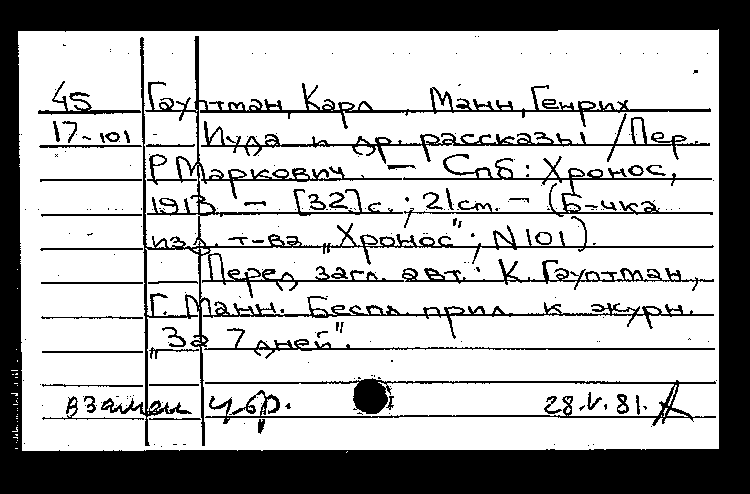 45 Гауптман, Карл, Манн, Генрих
17-101 Иуда и др. рассказы / Пер.
Р Маркович. — Спб: Хронос,
1913. — [32] с.; 21 см. — (Б-чка
изд. т-ва „Хронос"; N 101).
Перед загл. авт.: К. Гауптман,
Г. Манн. Беспл. прил. к журн.
„За 7 дней".
взамен 28.V.81.